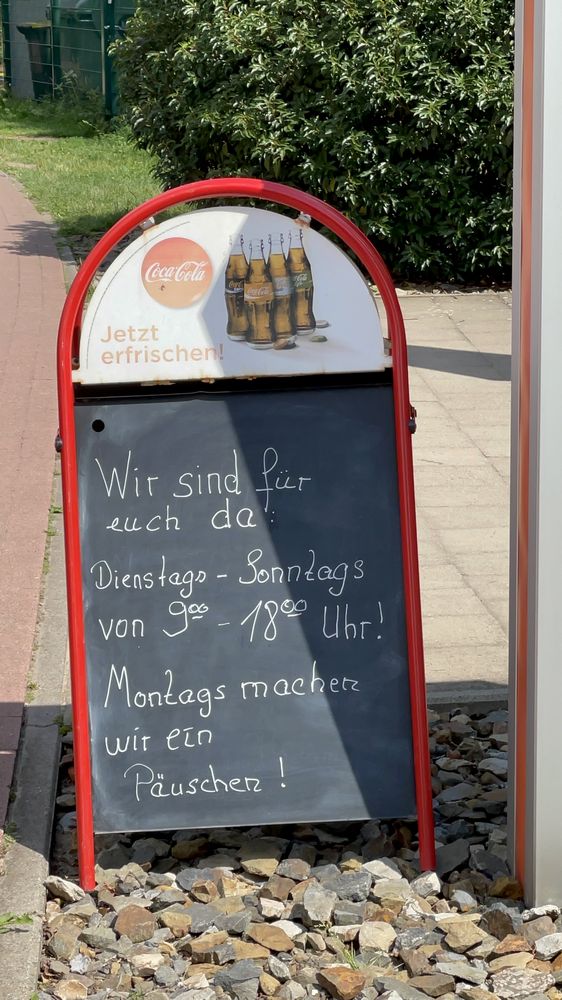 Coca-Cola
Jetzt
erfrischen!
Wir sind für
euch da:
Dienstags - Sonntags
von 9⁰⁰ - 18⁰⁰ Uhr!
Montags machen
wir ein
Päuschen!